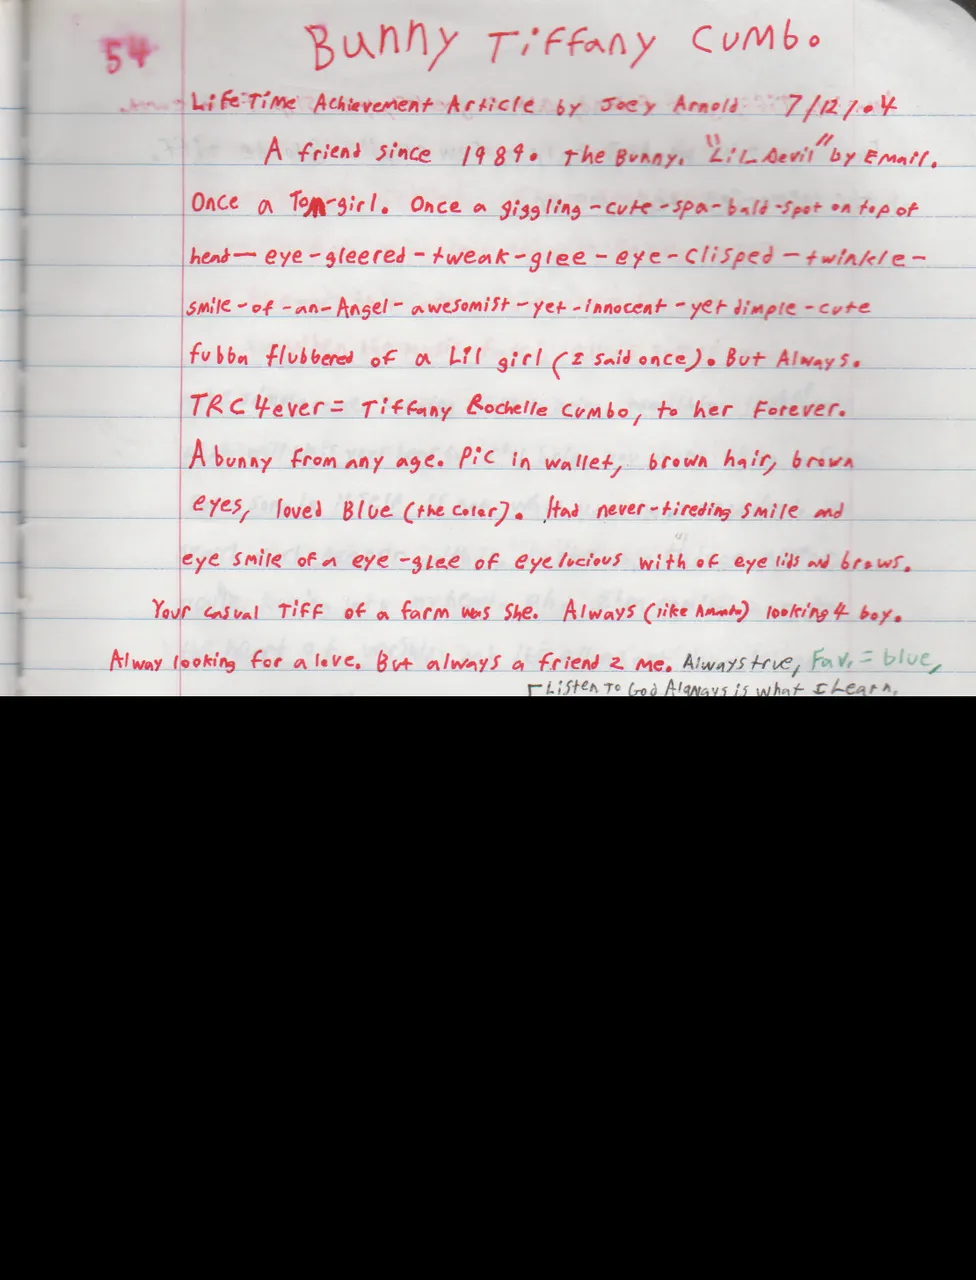 54
Bunny Tiffany Cumbo
Life Time Achievement Article by Joey Arnold 7/12/04
A friend since 1989. The Bunny. "Lil Devil" by Email.
Once a Tom-girl. Once a giggling-cute-spa-bald-spot on top of
head-eye-gleered-tweak-glee-eye-clisped-twinkle-
smile-of-an-Angel-awesomist-yet-innocent-yet dimple-cute
fubba flubbered of a Lil girl (I said once). But Always.
TRC 4ever = Tiffany Rochelle Cumbo, to her Forever.
A bunny from any age. Pic in wallet, brown hair, brown
eyes, loved Blue (the color). Had never-tireding smile and
eye smile of a eye-glee of eyelucious with of eye lids and brows.
Your casual Tiff of a farm was she. Always (like Amanda) looking 4 boy.
Alway looking for a love. But always a friend 2 me. Always true, Fav. = blue,
Listen To God Always is what I Learn.